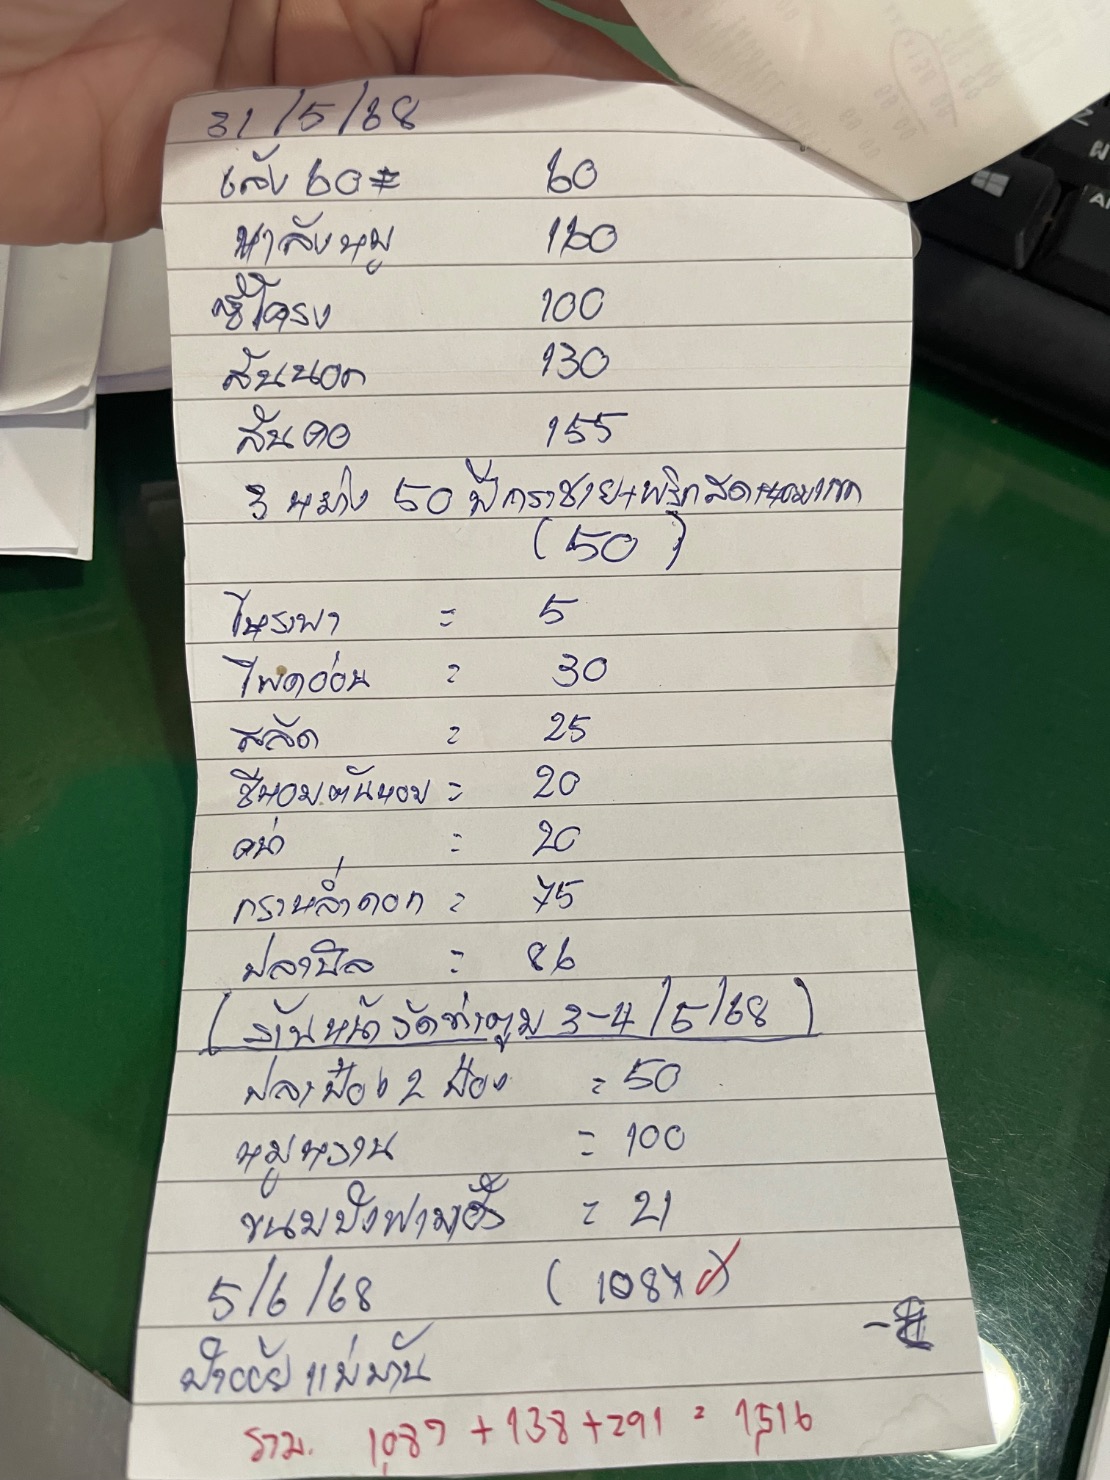 31/5/68
เล้ง 60 60
ขาลังหมู 160
ซี่โครง 100
สันนอก 130
สันคอ 155
3 หม่าง 50 ปี กระชาย+พริกสด
(50)
โหระพา = 5
โพดอ่อน = 30
สลัด = 25
ชีหอมต้นหอม = 20
คน้า = 20
กราหล่ำดอก = 75
ปลานิล = 86
( ร้านหน้าวัดท่าตูม 3-4/5/68 )
ปลาป๋อง 2 ป๋อง = 50
หมูหวาน = 100
ขนมปังฟามเฮ้า = 21
5/6/68 (1087)
แม่มัน
รวม. 1,087 + 138 + 291 = 1,516